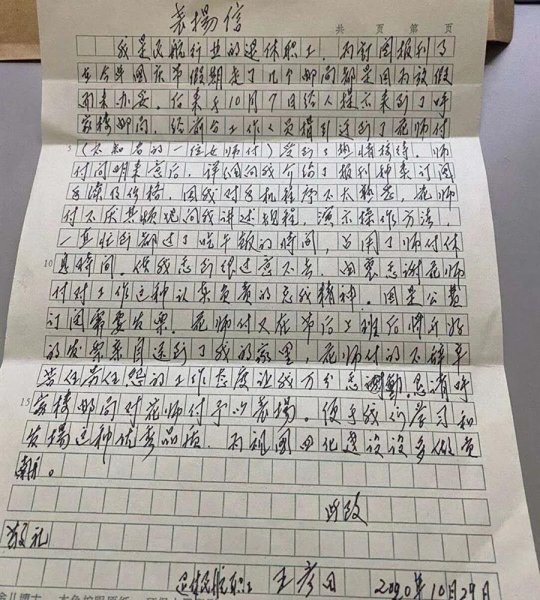 表揚信
共 页 第 页
我是民航行业的退休职工,为订阅报刊了
去年年国庆节假期走了几个邮局都是因为放假
而未办妥。后来于10月7日给人提示来到了呼
家楼邮局,经前台工作人员指引这到了花师付
(不知名的一位女师付)受到了热情接待。师
付问明来意后,详细向我介绍了报刊种类订阅
手续及价格,因我对手机程序不太熟悉,花师
付不厌其烦地向我讲述规程,演示操作方法,
一直忙到都过了吃午飯的时间,占用了师付休
10 息时间。使我感到很过意不去,由衷感谢花师
付对工作这种认真负责的忘我精神。因是公費
订阅需要发票。花师付又在节后上班后将开好
的发票亲自送到了我的家里,花师付的不辞辛
苦任劳任怨的工作态度让我万分感谢動,恳请呼
15 家楼邮局对花师付予以表揚。便于我们学习和
发揚这种优秀品质,为祖國四化建设设多做贡
献。
此致
敬礼
退休民航职工 王 2020年10月29日